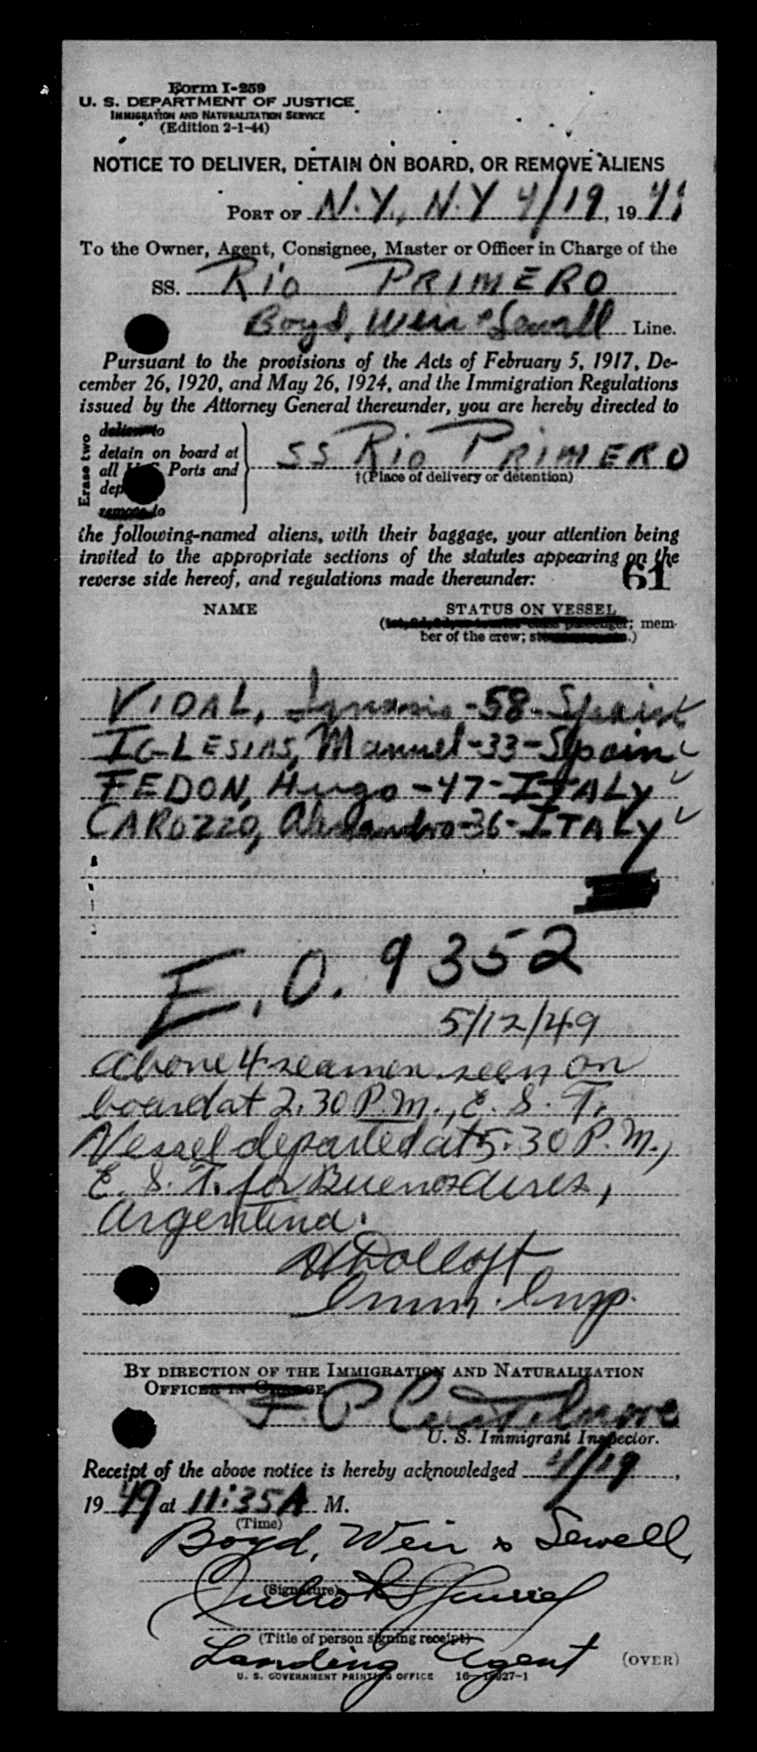 Form I-259
U. S. DEPARTMENT OF JUSTICE
IMMIGRATION AND NATURALIZATION SERVICE
(Edition 2-1-44)
NOTICE TO DELIVER, DETAIN ON BOARD, OR REMOVE ALIENS
PORT OF N.Y., N.Y 4/19, 19
To the Owner, Agent, Consignee, Master or Officer in Charge of the
SS. Rio PRIMERO
Boyd, Weir & Sewall Line.
Pursuant to the provisions of the Acts of February 5, 1917, De-
cember 26, 1920, and May 26, 1924, and the Immigration Regulations
issued by the Attorney General thereunder, you are hereby directed to
Erase two
deliver to
detain on board at
all U.S Ports and
SS Rio PRIMERO
†(Place of delivery or detention)
remove to
the following-named aliens, with their baggage, your attention being
invited to the appropriate sections of the statutes appearing on the
reverse side hereof, and regulations made thereunder:
61
NAME STATUS ON VESSEL
passenger; mem-
ber of the crew;
VIDAL, Ignacio-58-Spain
IGLESIAS, Manuel-33-Spain
FEDON, Hugo-47-ITALY
CAROZZO, Alessandro-36-ITALY
E.O. 9352
5/12/49
above 4 seamen seen on
board at 2.30 P.M., E. S. T.
Vessel departed at 5.30 P.M.,
E. S. T. for Buenos aires,
argentina.
Imm. Insp.
BY DIRECTION OF THE IMMIGRATION AND NATURALIZATION
OFFICER IN CHARGE
F. P.
U. S. Immigrant Inspector.
Receipt of the above notice is hereby acknowledged 4/19,
19 49 at 11:35 A M.
(Time)
Boyd, Weir & Sewell,
(Signature)
(Title of person signing receipt)
Landing Agent
(OVER)
U. S. GOVERNMENT PRINTING OFFICE